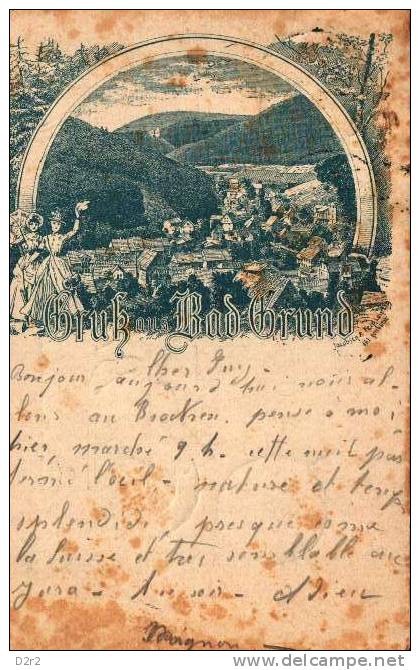 Gruß aus Bad Grund
Bonjour Cher
aujourd'hui nous al-
lons au Brocken. pense à moi
hier, marché 9 h. cette nuit pas
fermé l'oeil - nature et temps
splendide, presque comme
la Suisse et très semblable au
Jura - Adieu
D2r2
delcampe.net